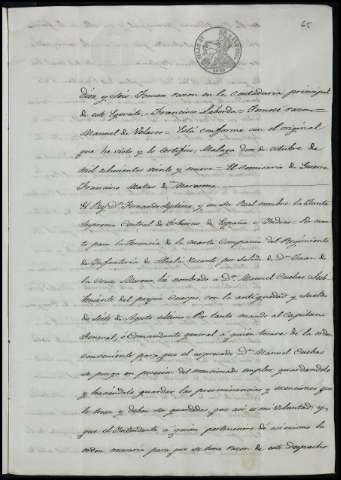 65
Diez y seis. Tomose razon en la contaduria principal
de este Egercito = Francisco Laborda = Tomose razon =
Manuel de Velasco = Está conforme con el original
que he visto y lo certifico, Malaga dos de Octubre de
mil ochocientos veinte y nueve = El Comisario de Guerra
Francisco
El Rey Dn. Fernando septimo, y en su Real nombre la Junta
Suprema Central de Gobierno de España e Indias = Por cuanto
para la Tenencia de la cuarta Compañia del Regimiento
de Infanteria de Alcalá vacante por salida de Dn. Juan de
la Cruz he nombrado a Dn. Manuel Cuebas Sub
teniente del propio Cuerpo con la antiguedad y sueldo
de siete de Agosto ultimo = Por tanto mando al Capitan
General, ó Comandante general a quien tocare dé la orden
conveniente para que al espresado Dn. Manuel Cuebas
se ponga en posesion del mencionado empleo, guardandole
y haciendole guardar las preeminencias y exenciones que
le tocan y deben ser guardadas, por asi es mi voluntad, y
que el Intendente a quien perteneciere dé asi mismo la
orden necesaria para que se tome razon de este despacho